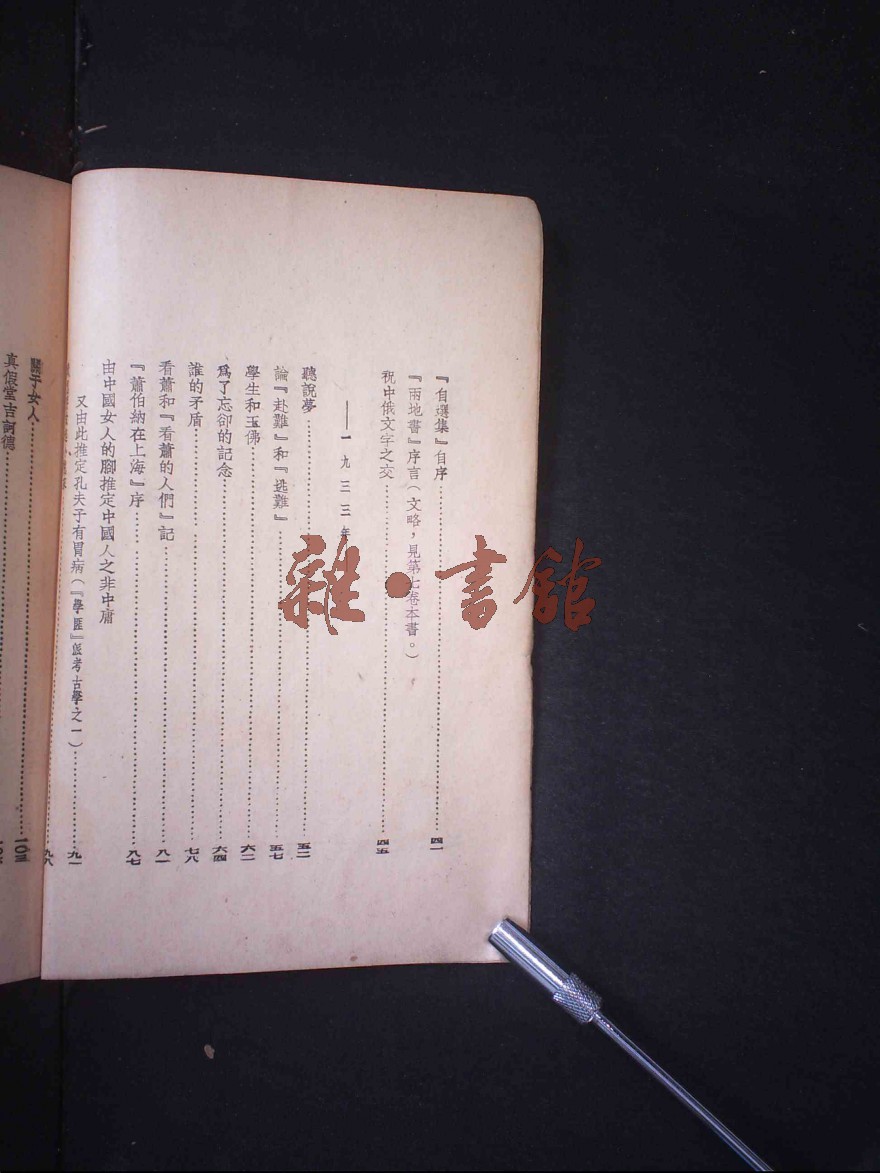 『自選集』自序……四一
『兩地書』序言(文略,見第七卷本書。)
祝中俄文字之交……四五
——一九三三年
聽說夢……五二
論『赴難』和『逃難』……五七
學生和玉佛……六二
爲了忘卻的記念……六四
誰的矛盾……七八
看蕭和『看蕭的人們』記……八一
『蕭伯納在上海』序……八七
由中國女人的腳推定中國人之非中庸
又由此推定孔夫子有胃病(『學匪』派考古學之一)……九一
九八
關于女人……一〇三
真假堂吉訶德
雜·書館